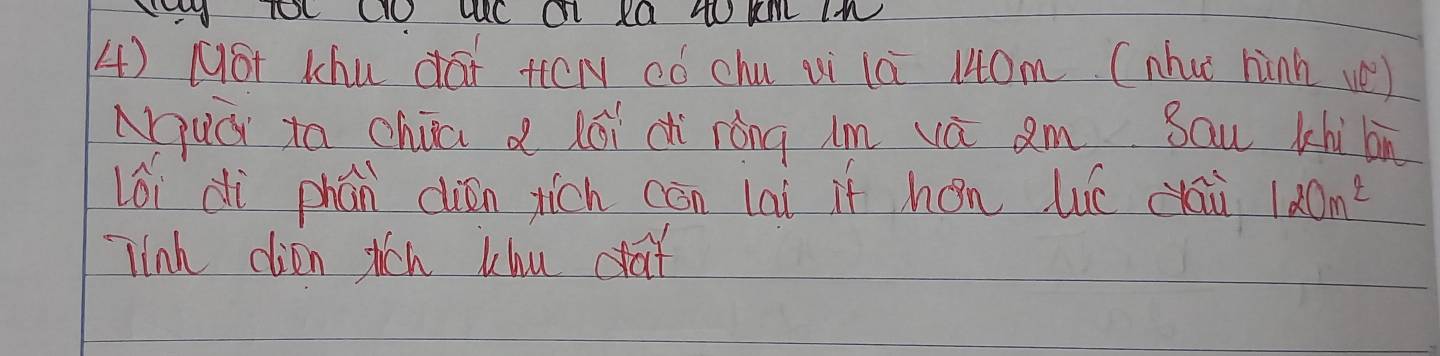 tốc độ lúc đi là 40 km/h
4) Một khu đất HCN có chu vi là 140m (như hình vẽ)
Người ta chừa 2 lối đi rộng 1m và 2m Sau khi làm
lối đi phần diện tích còn lại ít hơn lúc đầu 120m²
Tính diện tích khu đất